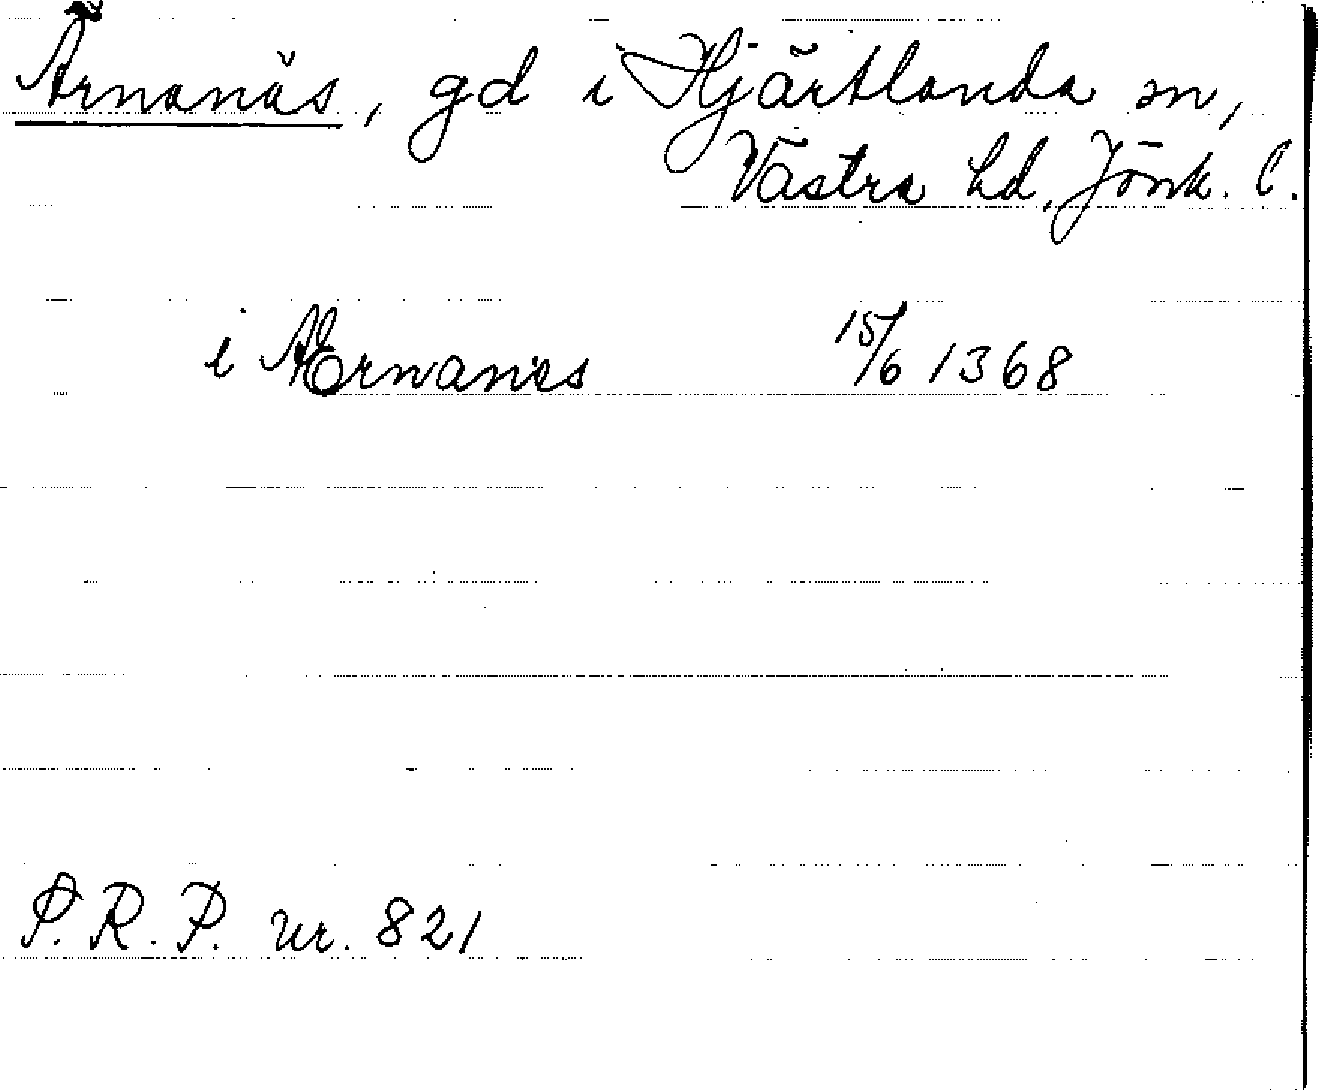 Ärnanäs, gd i Hjärtlanda sn,
Västra hd, Jönk. l.
i Ærnanæs 15/6 1368
P. R. P. nr. 821